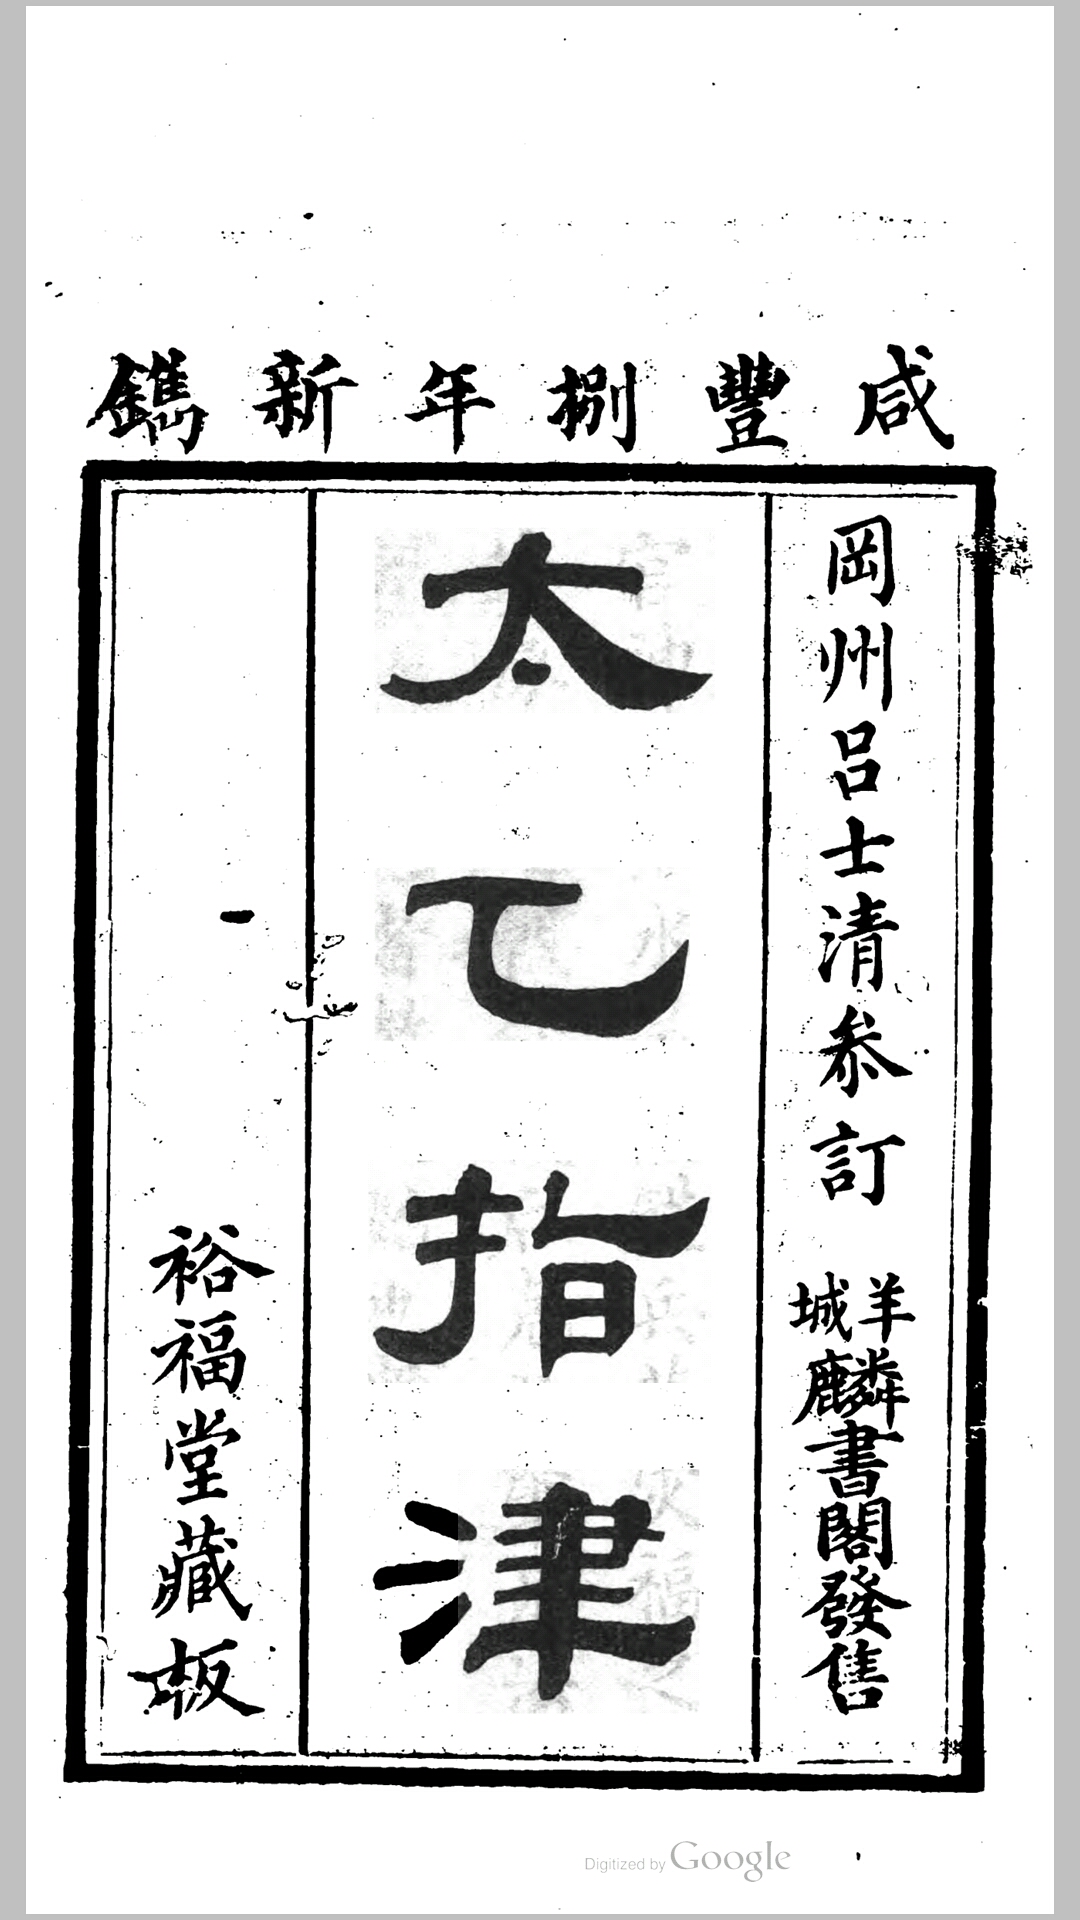 咸豐捌年新鐫
岡州呂士清叅訂
羊城麟書閣發售
太乙指津
裕福堂藏板
Digitized by Google